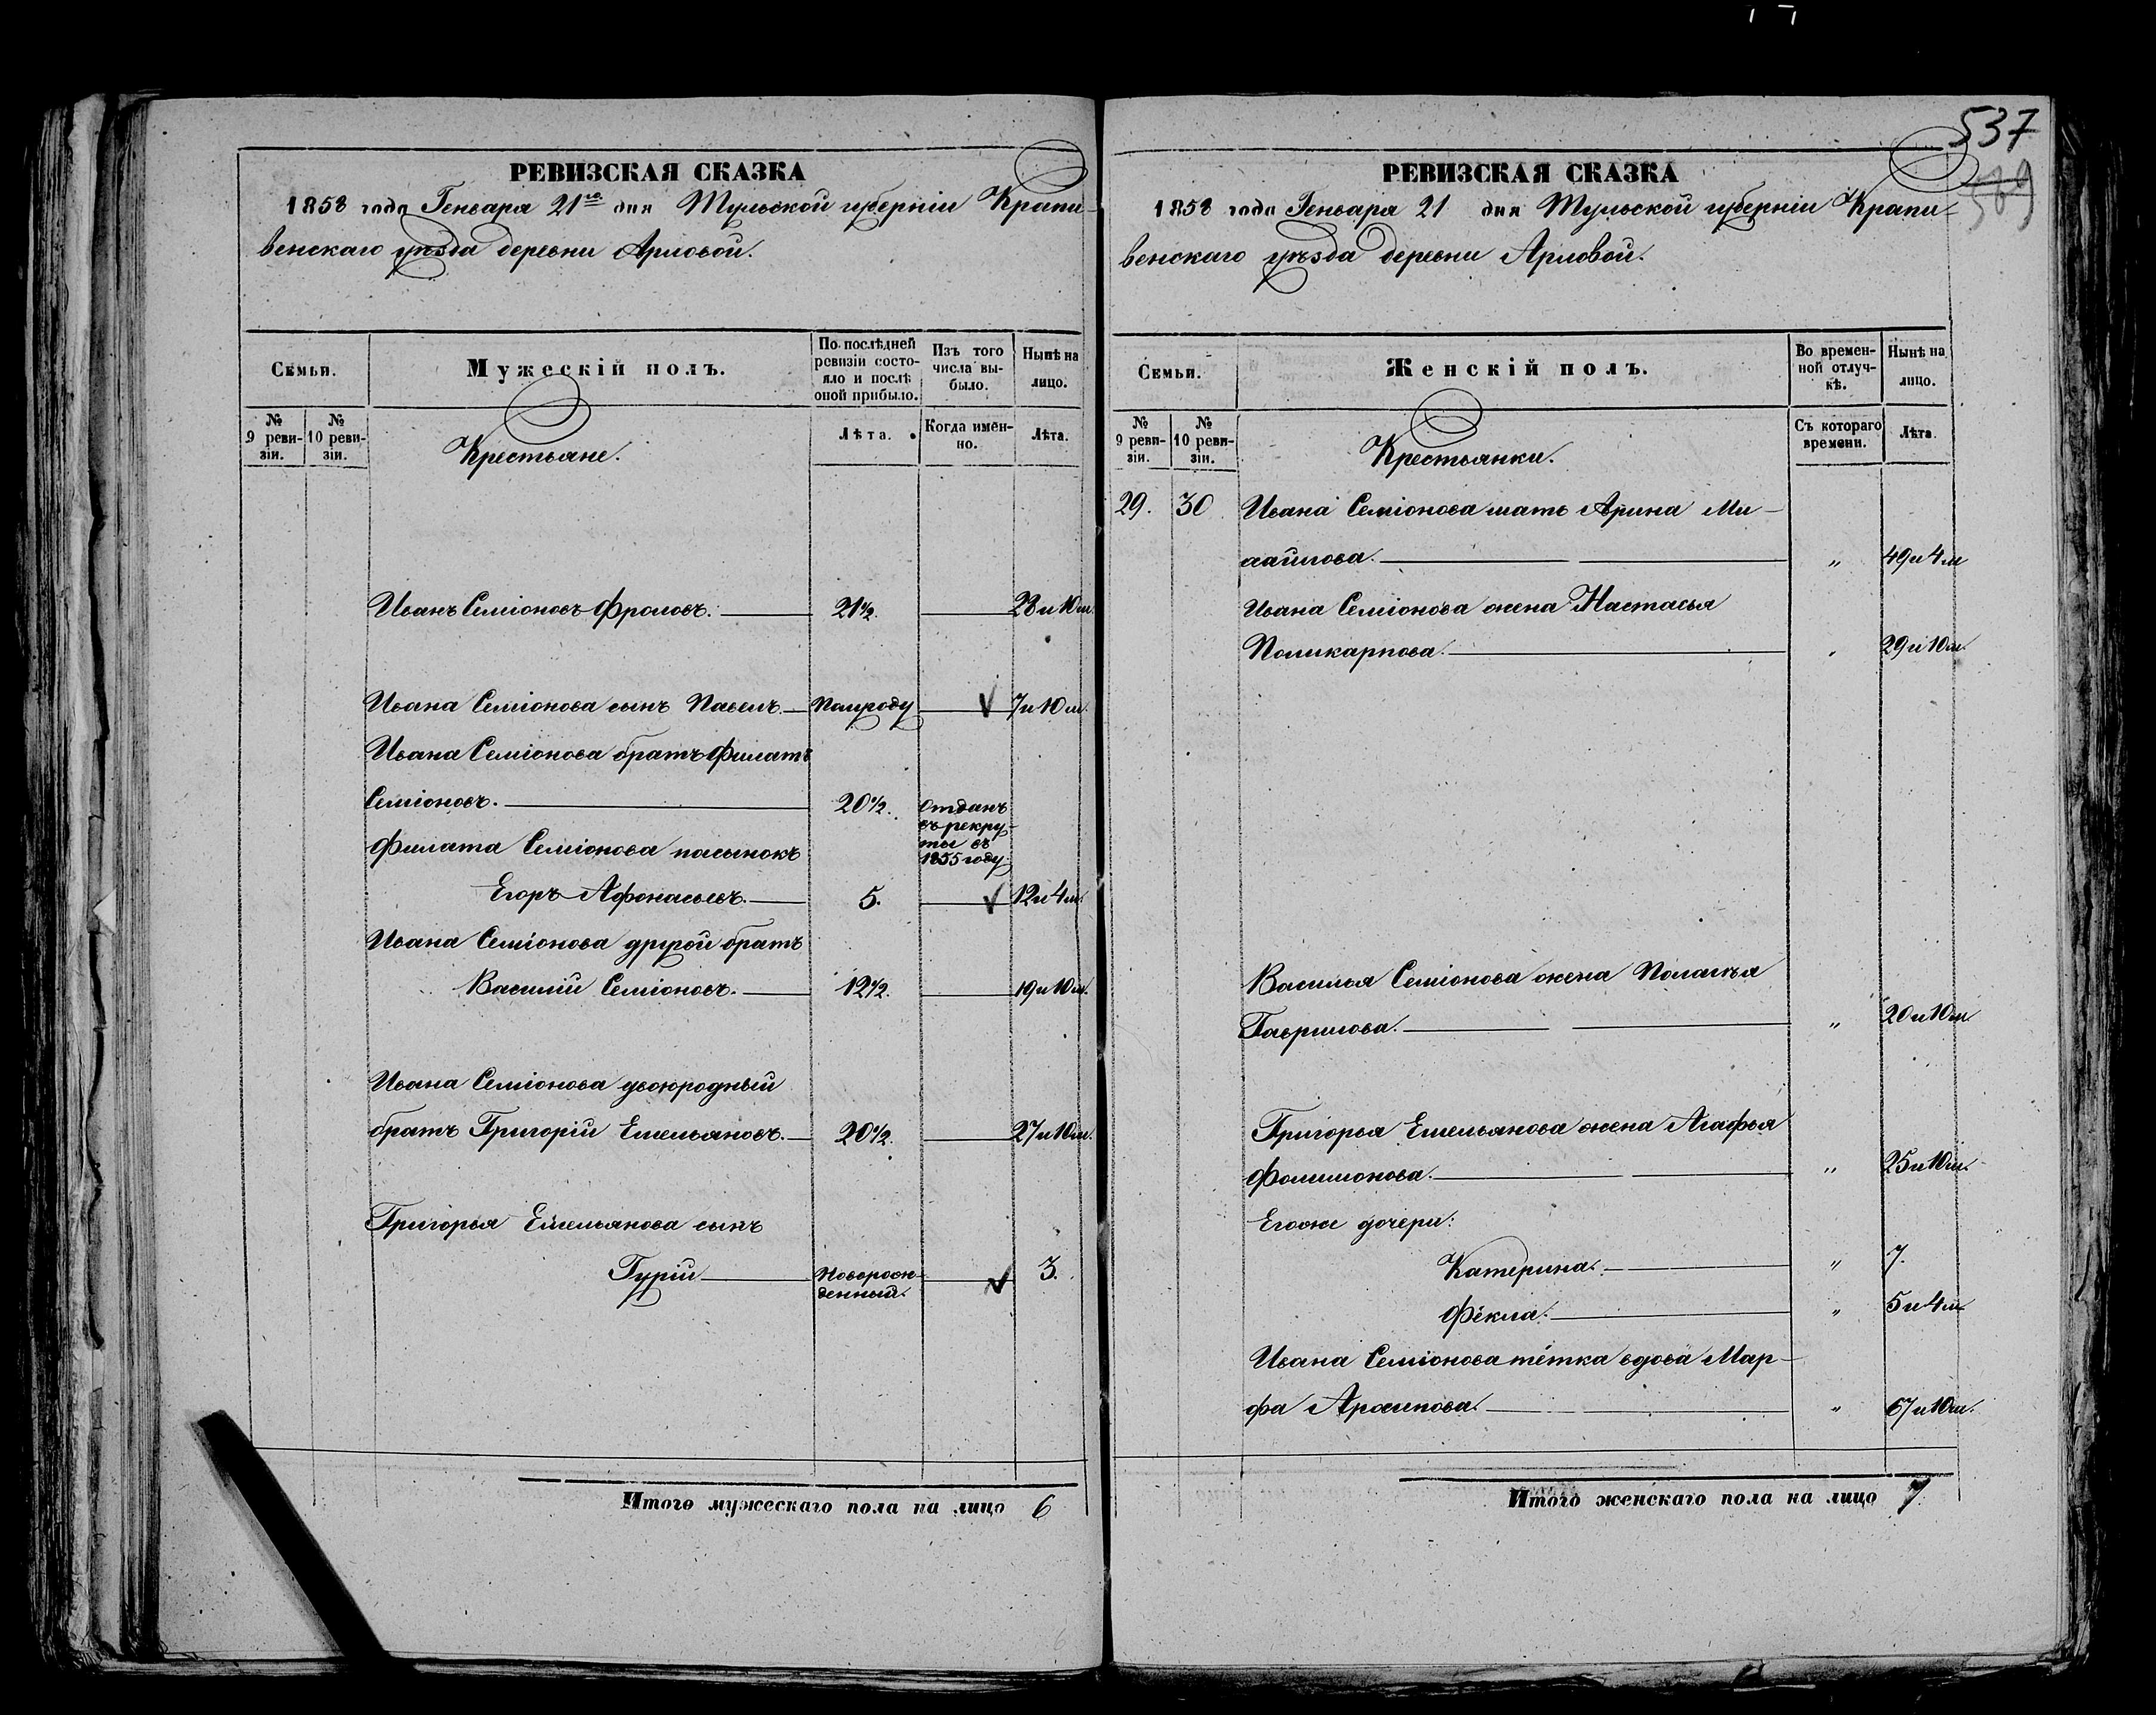 РЕВИЗСКАЯ СКАЗКА
1858 года Генваря 21го дня Тульской губернiи Крапи-
венскаго уѣзда деревни Арловой.
Семьи.
Мужескiй полъ.
По послѣдней ревизiи состо-
яло и послѣ оной прибыло.
Изъ того числа вы-
было.
Нынѣ на лицо.
№ 9 реви-
зiи.
№ 10 реви-
зiи.
Лѣта.
Когда имен-
но.
Лѣта.
Крестьяне.
Иванъ Семiоновъ Фроловъ. 21½. 28 и 10 м.
Ивана Семiонова сынъ Павелъ. Полугоду 7 и 10 м.
Ивана Семiонова братъ Филатъ
Семiоновъ. 20½. Отданъ
въ рекру-
ты въ
1855 году.
Филата Семiонова пасынокъ
Егоръ Афонасьевъ. 5. 12 и 4 м.
Ивана Семiонова другой братъ
Василiй Семiоновъ. 12½. 19 и 10 м.
Ивана Семiонова двоюродный
братъ Григорiй Емельяновъ. 20½. 27 и 10 м.
Григорья Емельянова сынъ
Гурiй Новорож-
денный. 3.
Итого мужескаго пола на лицо 6
537
589
РЕВИЗСКАЯ СКАЗКА
1858 года Генваря 21 дня Тульской губернiи Крапи-
венскаго уѣзда деревни Арловой.
Семьи.
Женскiй полъ.
Во времен-
ной отлуч-
кѣ.
Нынѣ на лицо.
№ 9 реви-
зiи.
№ 10 реви-
зiи.
Съ котораго времени.
Лѣта
Крестьянки.
29. 30 Ивана Семiонова мать Арина Ми-
хайлова. " 49 и 4 м
Ивана Семiонова жена Настасья
Поликарпова. " 29 и 10 м.
Василья Семiонова жена Полагѣя
Гаврилова. " 20 и 10 м
Григорья Емельянова жена Агафья
Фолимонова. " 25 и 10 м.
Егоже дочери:
Катерина. " 7.
Фёкла. " 5 и 4 м.
Ивана Семiонова тётка вдова Мар-
фа Архипова. " 67 и 10 м.
Итого женскаго пола на лицо 7